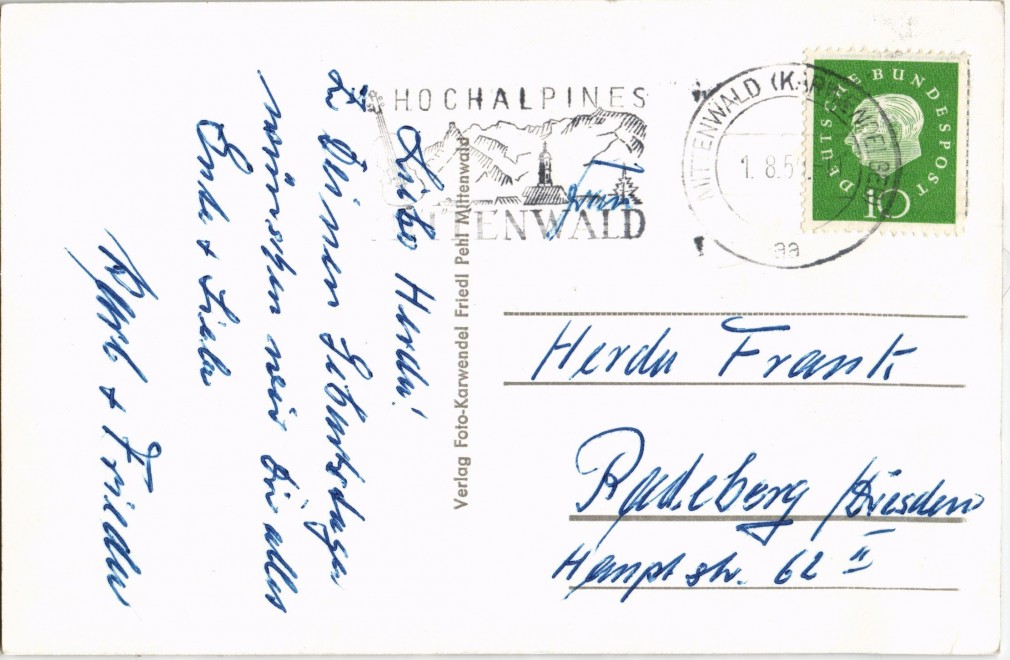 Liebe Herda!
Zu Deinem Geburtstage
wünschen wir Dir alles
Gute & Liebe
& Frieder
Verlag Foto-Karwendel Friedl Pehl Mittenwald
HOCHALPINES
MITTENWALD
MITTENWALD (KARWENDELGEB)
1.8.5
aa
DEUTSCHE BUNDESPOST
10
Frau
Herda Frank
Radeberg /Dresden
Hauptstr. 62 II